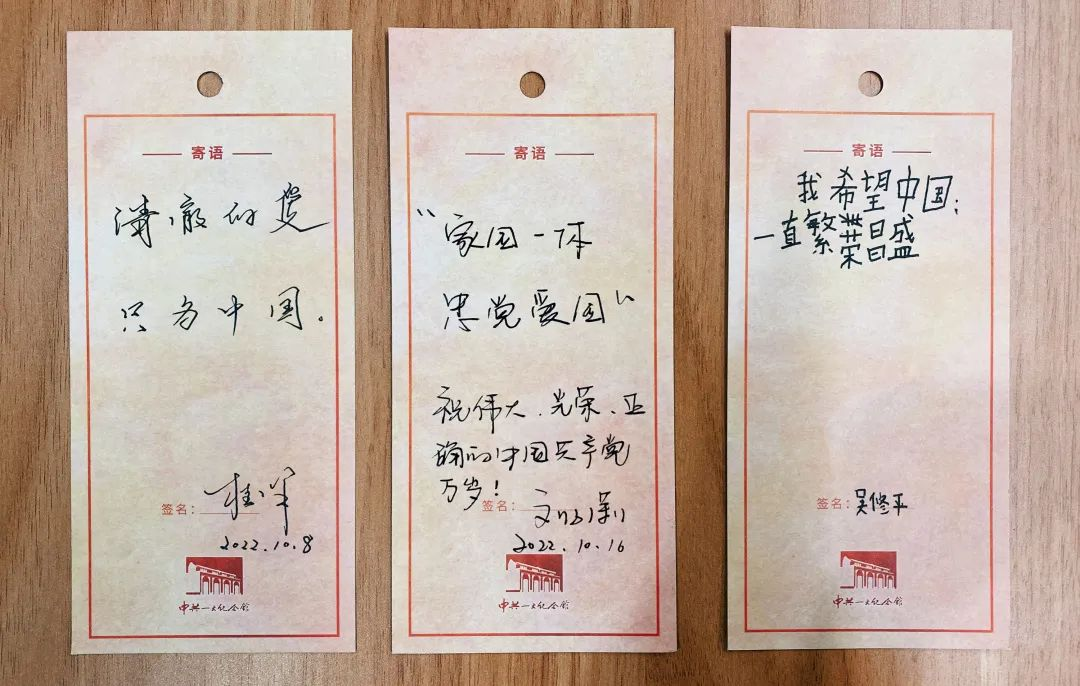 寄语
清澈的爱
只为中国。
签名:
2022.10.8
中共一大纪念馆
寄语
“家国一体
忠党爱国”
祝伟大、光荣、正
确的中国共产党
万岁!
签名:
2022.10.16
中共一大纪念馆
寄语
我希望中国;
一直繁荣昌盛
签名:吴修平
中共一大纪念馆